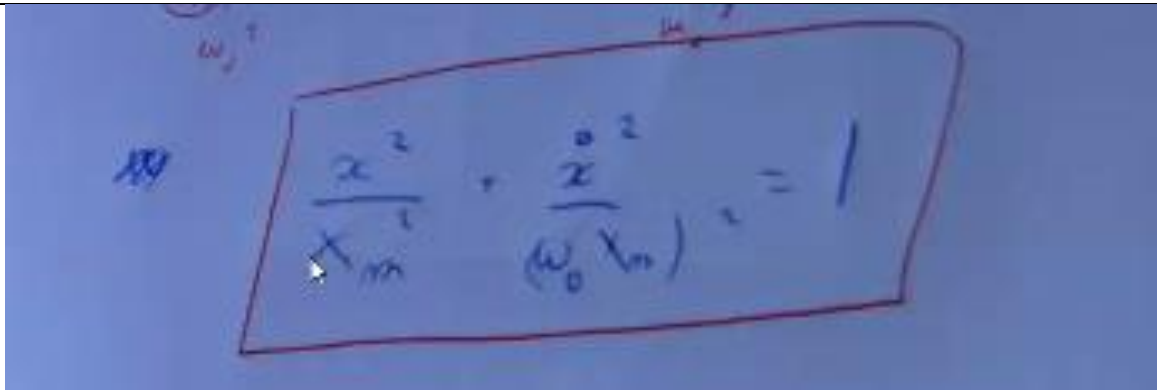 ω₀²
x² / Xm² + ẋ² / (ω₀ Xm)² = 1